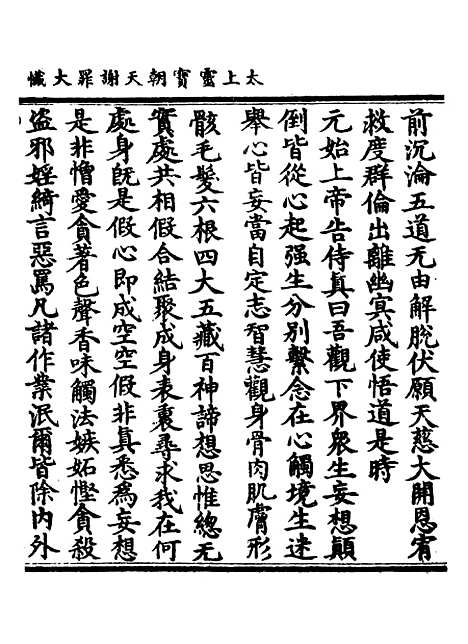 太上靈寶朝天謝罪大懺
前沉淪五道无由解脫伏願天慈大開恩宥
救度群倫出離幽冥咸使悟道是時
元始上帝告侍真曰吾觀下界衆生妄想顛
倒皆從心起强生分別繫念在心觸境生迷
舉心皆妄當自定志智慧觀身骨肉肌膚形
骸毛髮六根四大五藏百神諦想思惟緫无
實處共相假合結聚成身表裏尋求我在何
處身既是假心即成空空假非真悉為妄想
是非憎愛貪著色聲香味觸法嫉妬慳貪殺
盜邪婬綺言惡罵凡諸作業泯爾皆除内外